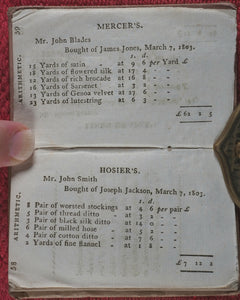 59 ARITHMETIC.
MERCER'S.
Mr. John Blades
Bought of James Jones, March 7, 1803.
s. d.
15 Yards of satin - at 9 6 per Yard £
18 Yards of flowered silk at 17 4 - -
12 Yards of rich brocade at 19 8 - -
16 Yards of Sarsenet at 3 2 - -
13 Yards of Genoa velvet at 27 6 - -
23 Yards of lutestring at 6 3 - -
£ 62 2 5
58 ARITHMETIC.
HOSIER'S.
Mr. John Smith
Bought of Joseph Jackson, March 7, 1803.
s. d.
8 Pair of worsted stockings at 4 6 per pair £
5 Pair of thread ditto - at 3 2 - -
3 Pair of black silk ditto at 14 0 - -
6 Pair of milled hose - at 4 2 - -
4 Pair of cotton ditto - at 7 6 - -
2 Yards of fine flannel - at 1 8 - -
£ 7 12 2